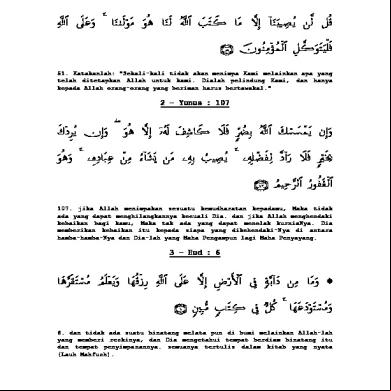 قُل لَّن يُصِيبَنَا إِلَّا مَا كَتَبَ اللَّهُ لَنَا هُوَ مَوْلَانَا ۚ وَعَلَى اللَّهِ
فَلْيَتَوَكَّلِ الْمُؤْمِنُونَ ﴿٥١﴾
51. Katakanlah: "Sekali-kali tidak akan menimpa Kami melainkan apa yang
telah ditetapkan Allah untuk kami. Dialah pelindung Kami, dan hanya
kepada Allah orang-orang yang beriman harus bertawakal."
2 – Yunus : 107
وَإِن يَمْسَسْكَ اللَّهُ بِضُرٍّ فَلَا كَاشِفَ لَهُ إِلَّا هُوَ ۖ وَإِن يُرِدْكَ
بِخَيْرٍ فَلَا رَادَّ لِفَضْلِهِ ۚ يُصِيبُ بِهِ مَن يَشَاءُ مِنْ عِبَادِهِ ۚ وَهُوَ
الْغَفُورُ الرَّحِيمُ ﴿١٠٧﴾
107. jika Allah menimpakan sesuatu kemudharatan kepadamu, Maka tidak
ada yang dapat menghilangkannya kecuali Dia. dan jika Allah menghendaki
kebaikan bagi kamu, Maka tak ada yang dapat menolak kurniaNya. Dia
memberikan kebaikan itu kepada siapa yang dikehendaki-Nya di antara
hamba-hamba-Nya dan Dia-lah yang Maha Pengampun lagi Maha Penyayang.
3 – Hud : 6
۞ وَمَا مِن دَابَّةٍ فِي الْأَرْضِ إِلَّا عَلَى اللَّهِ رِزْقُهَا وَيَعْلَمُ مُسْتَقَرَّهَا
وَمُسْتَوْدَعَهَا ۚ كُلٌّ فِي كِتَابٍ مُّبِينٍ ﴿٦﴾
6. dan tidak ada suatu binatang melata pun di bumi melainkan Allah-lah
yang memberi rezkinya, dan Dia mengetahui tempat berdiam binatang itu
dan tempat penyimpanannya. semuanya tertulis dalam kitab yang nyata
(Lauh Mahfuzh).